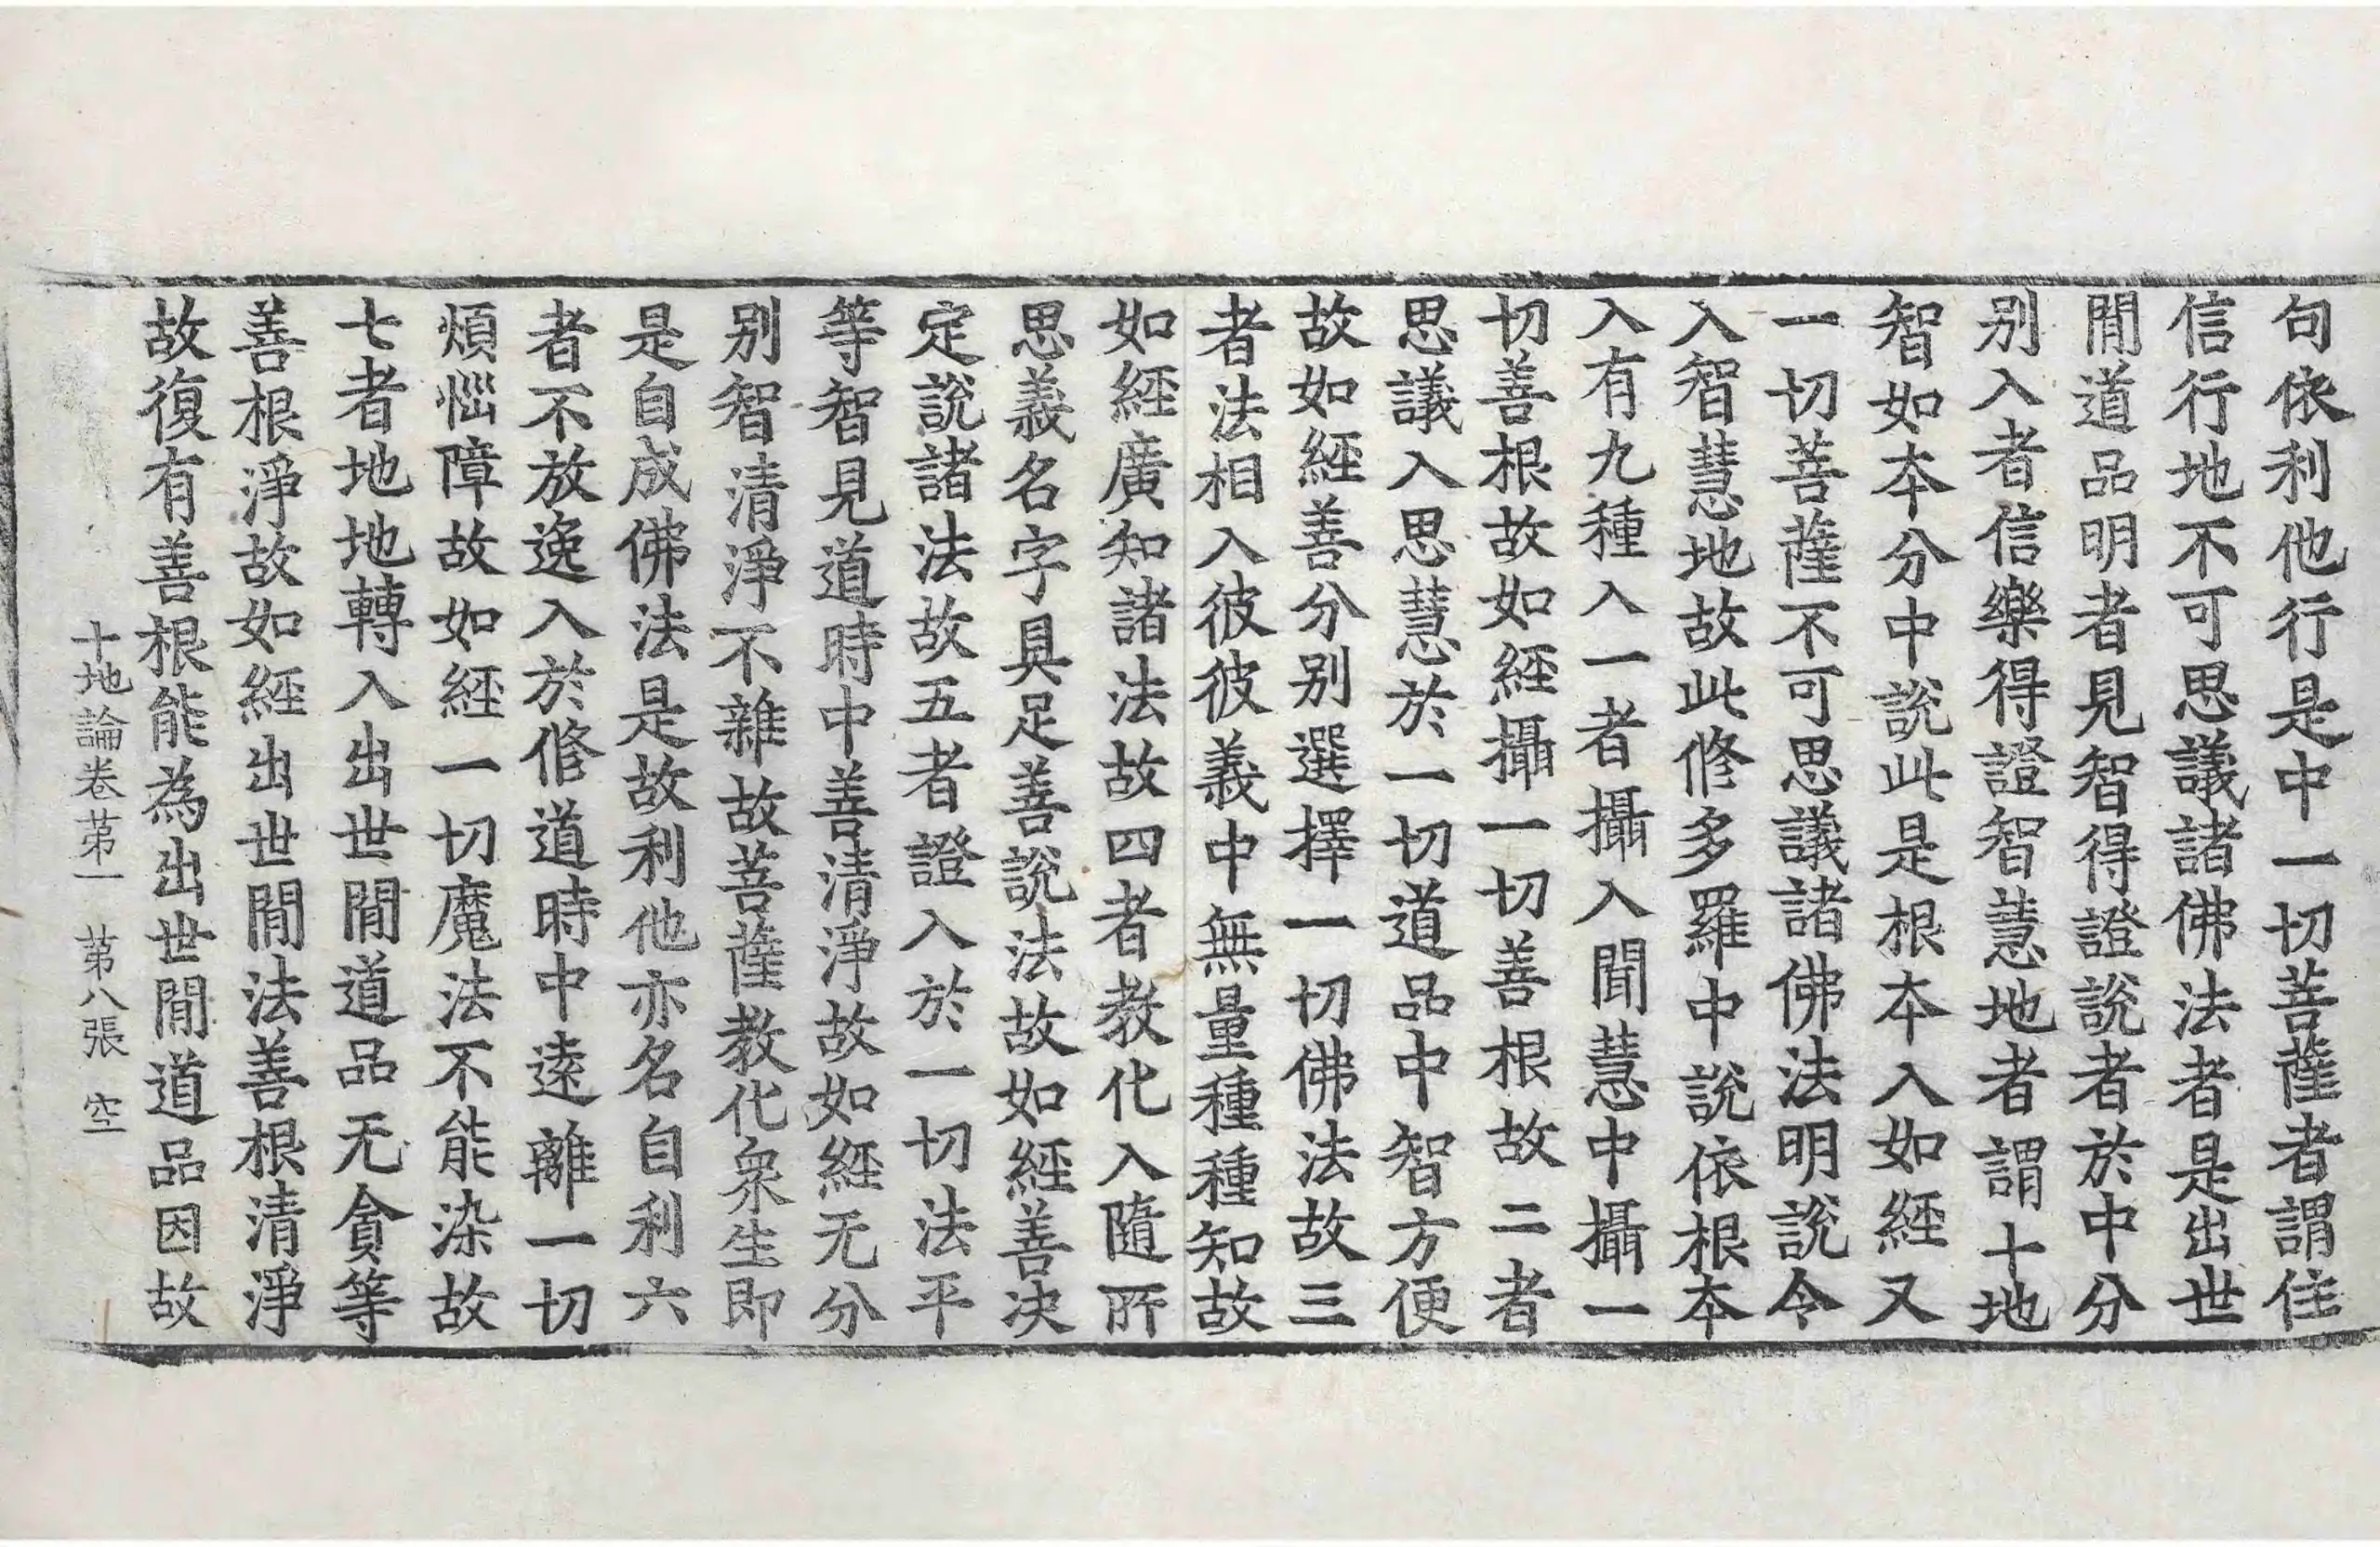 句依利他行是中一切菩薩者謂住
信行地不可思議諸佛法者是出世
閒道品明者見智得證說者於中分
别入者信樂得證智慧地者謂十地
智如本分中說此是根本入如經又
一切菩薩不可思議諸佛法明說令
入智慧地故此修多羅中說依根本
入有九種入一者攝入聞慧中攝一
切善根故如經攝一切善根故二者
思議入思慧於一切道品中智方便
故如經善分别選擇一切佛法故三
者法相入彼彼義中無量種種知故
如經廣知諸法故四者教化入隨所
思義名字具足善說法故如經善决
定說諸法故五者證入於一切法平
等智見道時中善清淨故如經无分
别智清淨不雜故菩薩教化衆生即
是自成佛法是故利他亦名自利六
者不放逸入於修道時中遠離一切
煩惱障故如經一切魔法不能染故
七者地地轉入出世閒道品无貪等
善根淨故如經出世閒法善根清淨
故復有善根能為出世閒道品因故
十地論卷苐一 苐八張 空